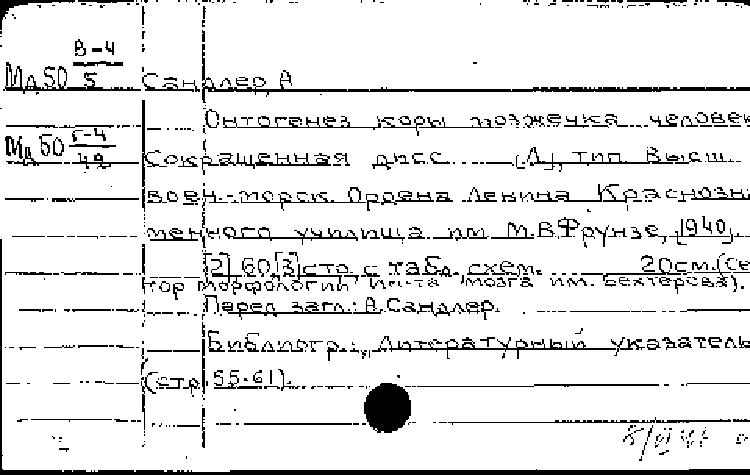 В-4
Мд50 5 Сандлер, А
Онтогенез коры мозжечка человек
Мд50 Г-4 49 Сокращенная дисс. [Л], тип. Высш.
воен.-морск. Ордена Ленина Краснозна
менного училища им. М.В.Фрунзе, [1940].
[2], 60,[3] стр. с табл. схем. 20см.(Сек
тор морфологии Ин-та мозга им. Бехтерева).
Перед загл.: А.Сандлер.
Библиогр.: "Литературный указатель
(стр. 55-61).